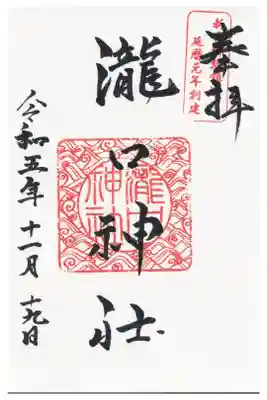 奉拝
延暦元年創建
瀧口神社
令和五年十一月十九日